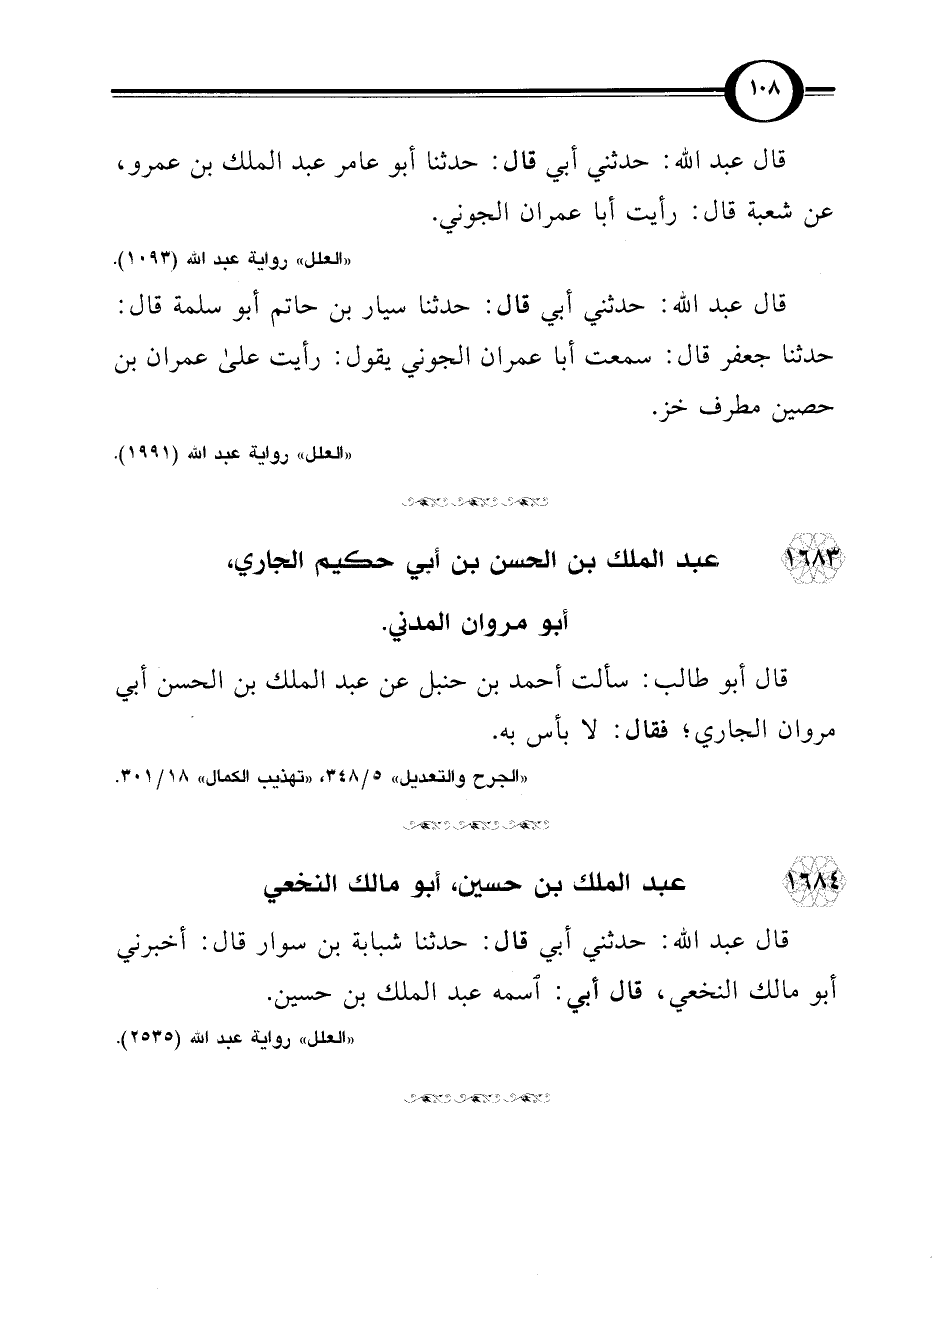 ١٠٨
قال عبد الله: حدثني أبي قال: حدثنا أبو عامر عبد الملك بن عمرو،
عن شعبة قال: رأيت أبا عمران الجوني.
«العلل» رواية عبد الله (١٠٩٣).
قال عبد الله: حدثني أبي قال: حدثنا سيار بن حاتم أبو سلمة قال:
حدثنا جعفر قال: سمعت أبا عمران الجوني يقول: رأيت علىٰ عمران بن
حصين مطرف خز.
«العلل» رواية عبد الله (١٩٩١).
١٦٨٣ عبد الملك بن الحسن بن أبي حكيم الجاري،
أبو مروان المدني.
قال أبو طالب: سألت أحمد بن حنبل عن عبد الملك بن الحسن أبي
مروان الجاري؛ فقال: لا بأس به.
«الجرح والتعديل» ٣٤٨/٥، «تهذيب الكمال» ٣٠١/١٨.
١٦٨٤ عبد الملك بن حسين، أبو مالك النخعي
قال عبد الله: حدثني أبي قال: حدثنا شبابة بن سوار قال: أخبرني
أبو مالك النخعي، قال أبي: ٱسمه عبد الملك بن حسين.
«العلل» رواية عبد الله (٢٥٣٥).